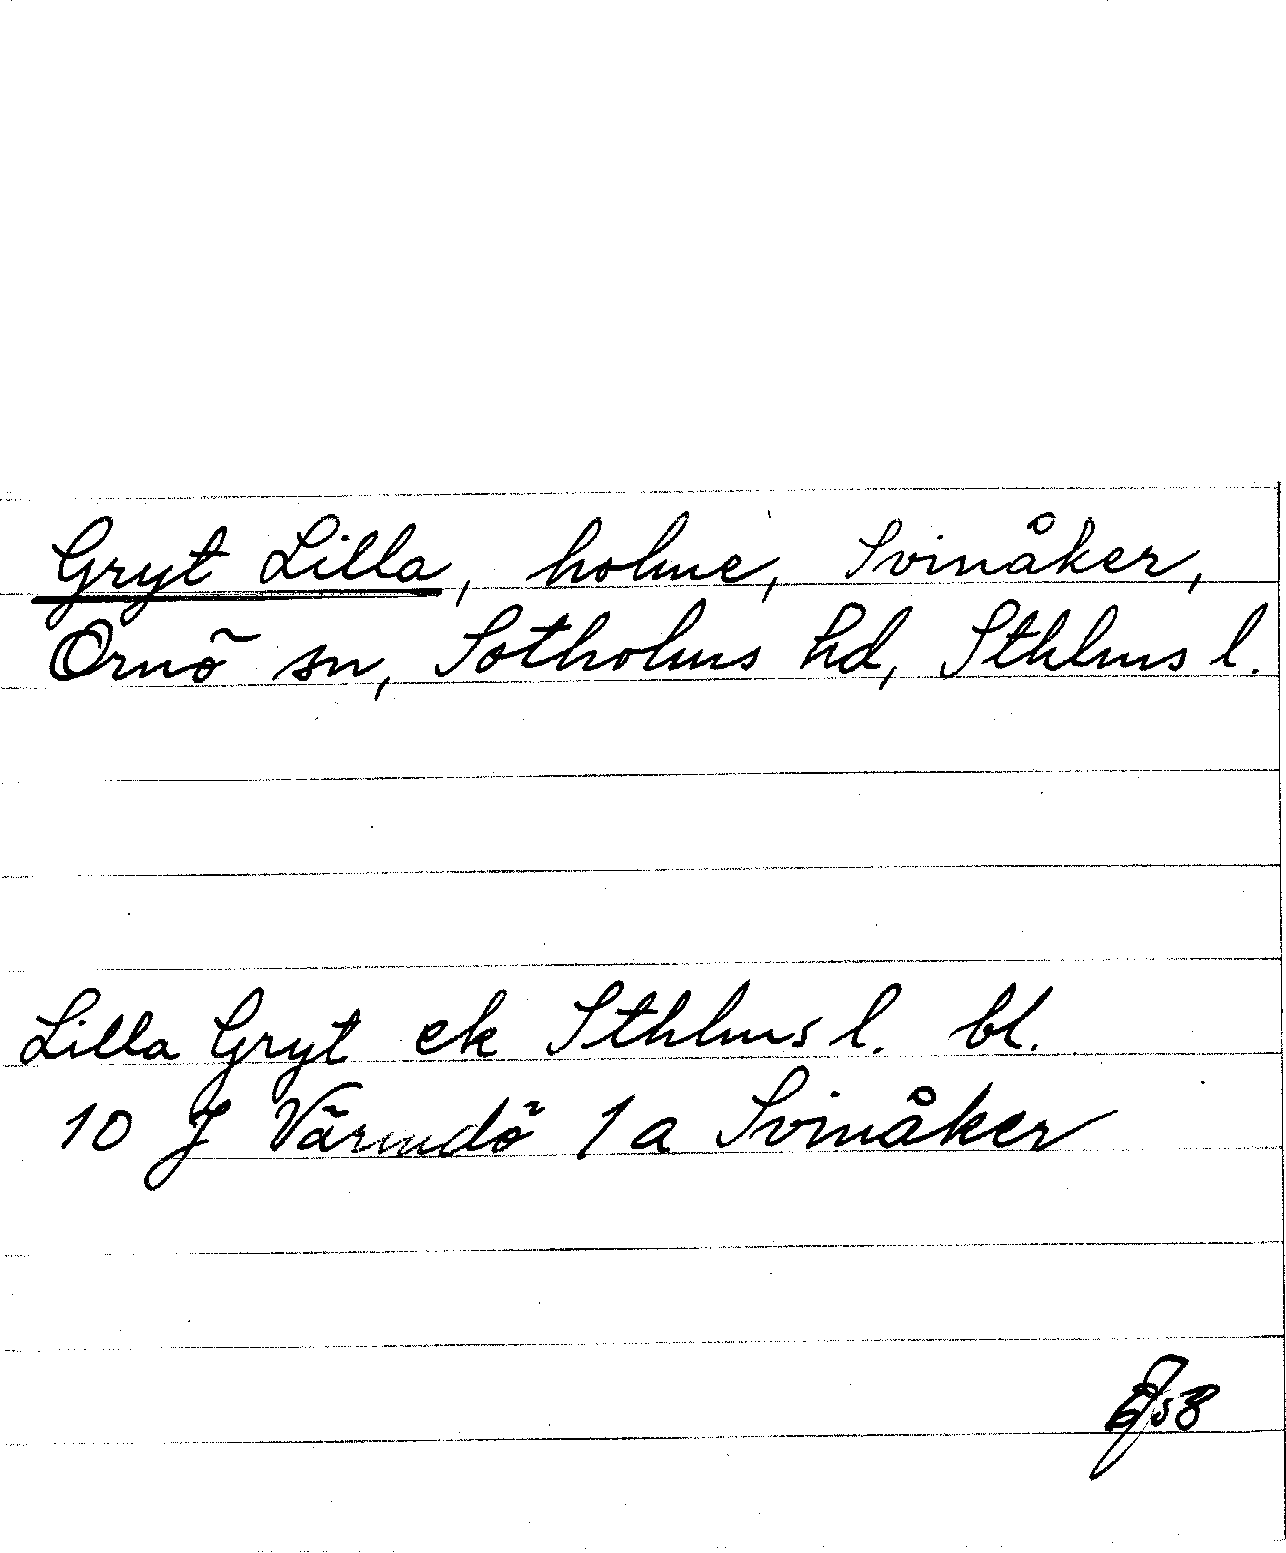 Gryt Lilla, holme, Svinåker,
Ornö sn, Sotholms hd, Sthlms l.
Lilla Gryt ek Sthlms l. bl.
10 J Värmdö 1 a Svinåker